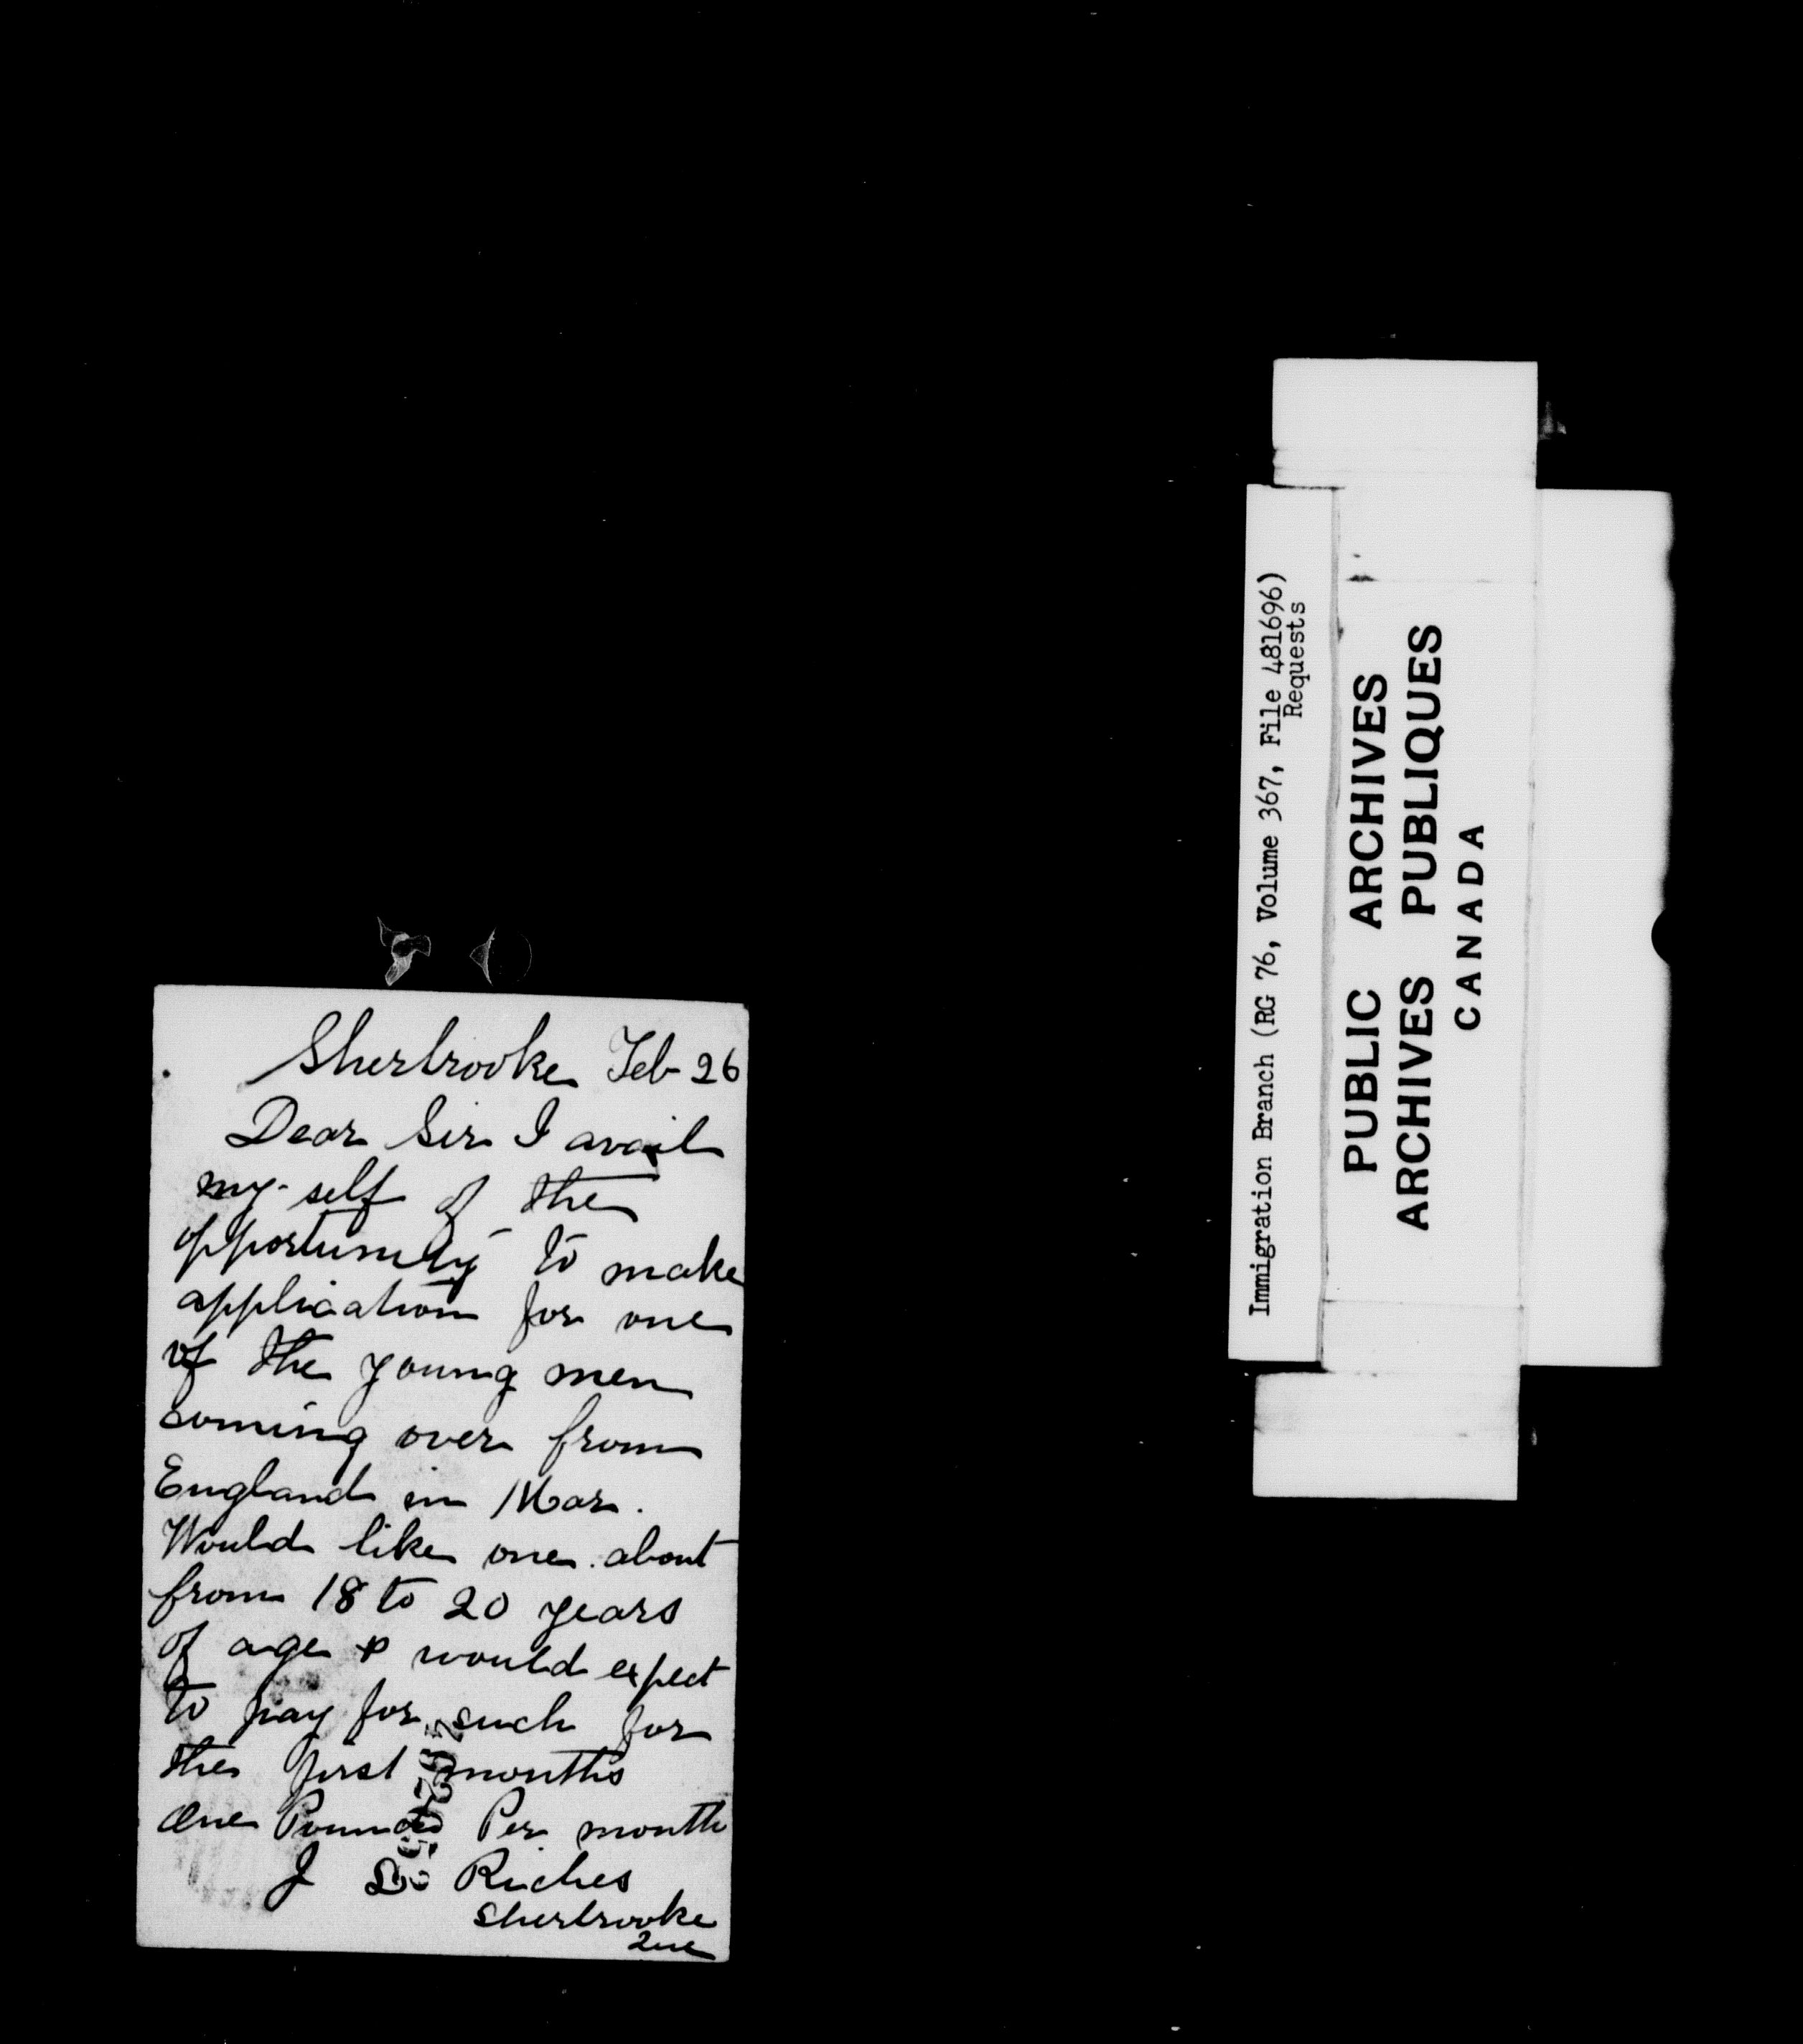 Sherbrooke Feb 26
Dear Sir I avail
my-self of the
opportunity to make
application for one
of the young men
coming over from
England in Mar.
Would like one about
from 18 to 20 years
of age & would expect
to pay for such for
the first months
One Pound Per month
J Riches
Sherbrooke
Que
Immigration Branch (RG 76, Volume 367, File 481696)
Requests
PUBLIC ARCHIVES
ARCHIVES PUBLIQUES
CANADA